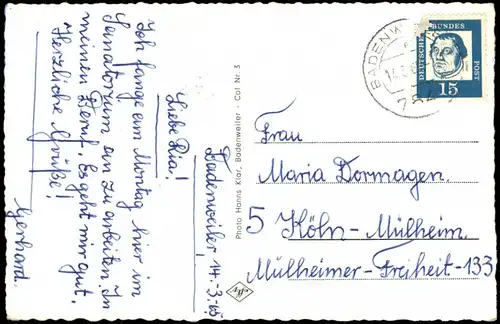 Badenweiler, 14.-3.-65
Liebe Ria!
Ich fange am Montag hier im
Sanatorium an zu arbeiten. In
meinen Beruf. Es geht mir gut.
Herzliche Grüße!
Gerhard.
Photo Hanns Klar, Badenweiler - Col Nr. 3
BADENW
14.
DEUTSCHE BUNDES POST
15
Frau
Maria Dormagen.
5 Köln-Mülheim.
Mülheimer-Freiheit-133